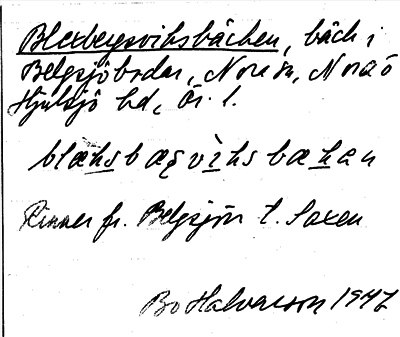 Blexbergsviksbäcken, bäck i
Belgsjöbodar, Nora sn, Nora o
Hjulsjö hd, Ör. l.
blæksbærgvìksbækan
Rinner fr. Belgsjön t. Saxen
Bo Halvarson 1947